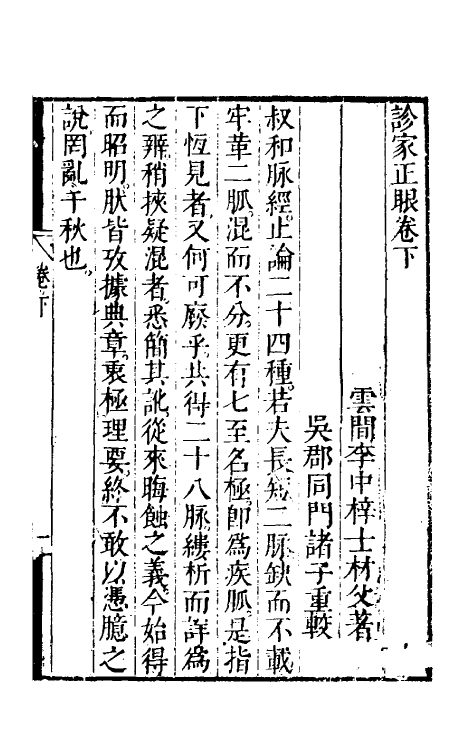 診家正眼卷下
雲間李中梓士材父著
吳郡同門諸子重較
叔和脉經止論二十四種若夫長短二脉缺而不載
牢革二脈混而不分更有七至名極卽爲疾脈是指
下恆見者又何可廢乎共得二十八脉縷析而詳爲
之辨稍挾疑混者悉簡其訛從來晦蝕之義今始得
而昭明肰皆攷據典章衷極理要終不敢以憑臆之
說罔亂千秋也
卷下
一